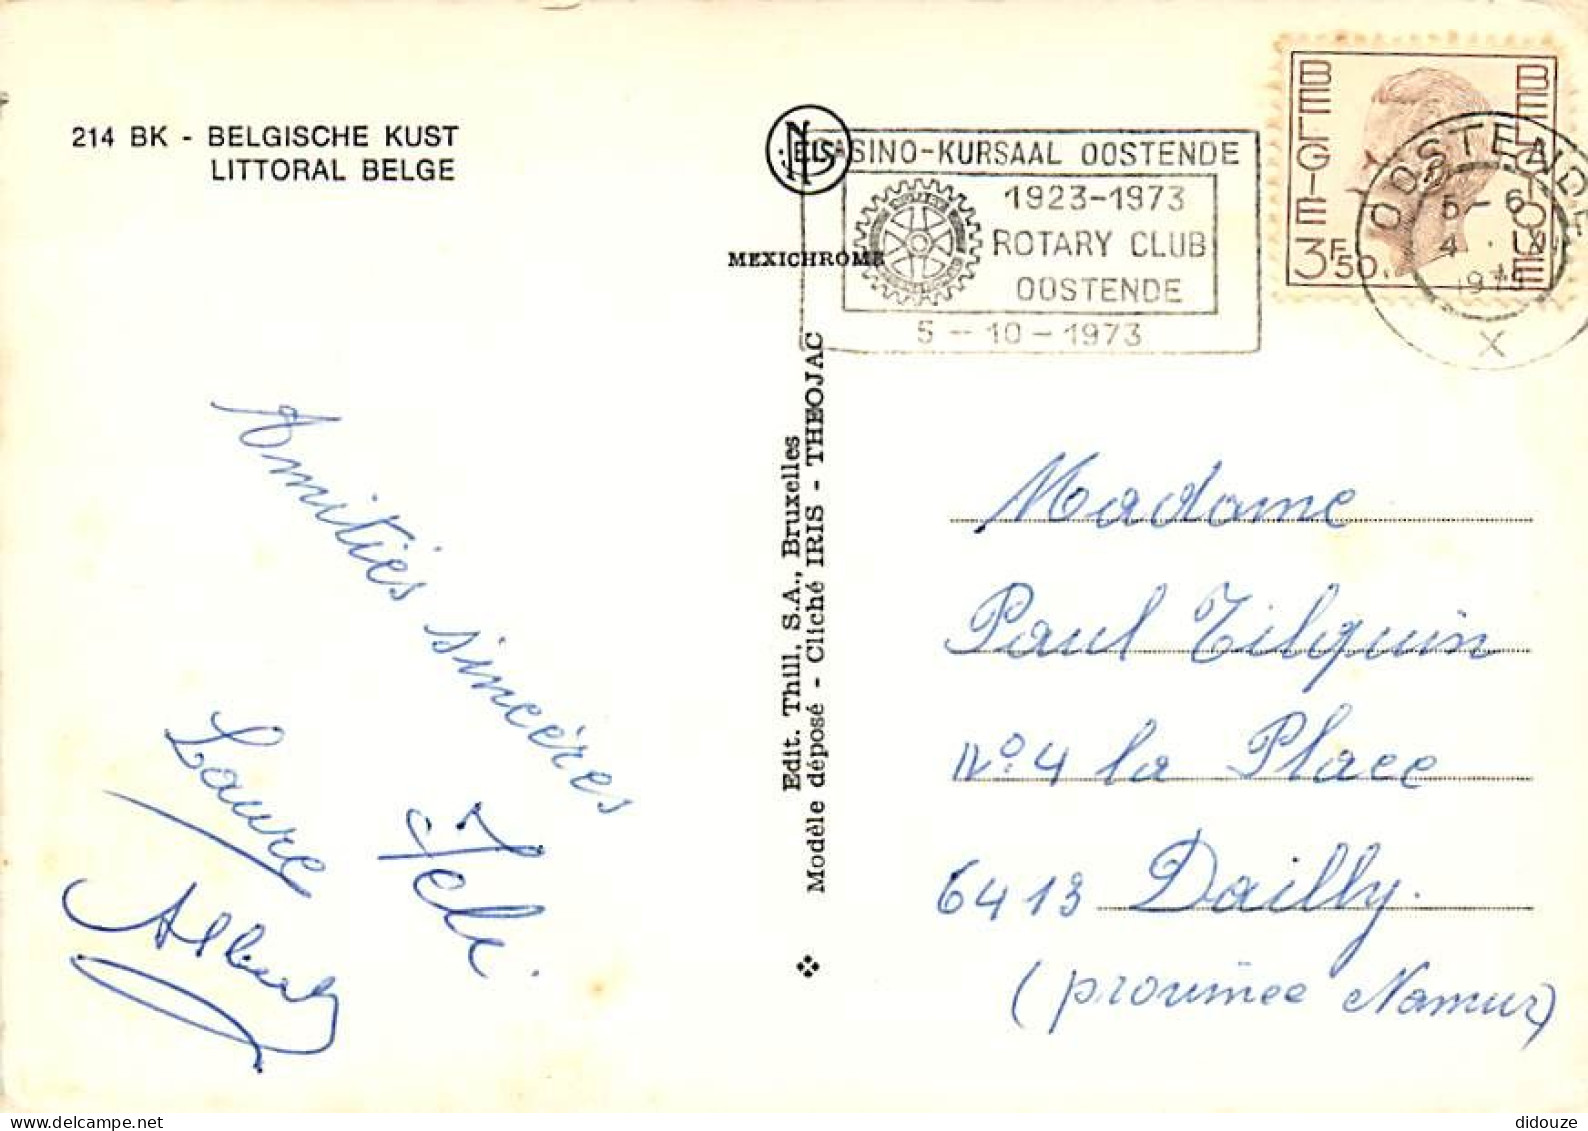 214 BK - BELGISCHE KUST
LITTORAL BELGE
NELS
MEXICHROME
CASINO-KURSAAL OOSTENDE
1923-1973
ROTARY CLUB
OOSTENDE
5-10-1973
BELGIE
BELGIQUE
3F50
OOSTENDE
5-6
1973
X
Amitiés sincères
Laure
Albert
Edit. Thill, S.A., Bruxelles
Modèle déposé - Cliché IRIS - THEOJAC
Madame
Paul Tilquin
N° 4 la Place
6413 Dailly.
(province Namur)
didouze